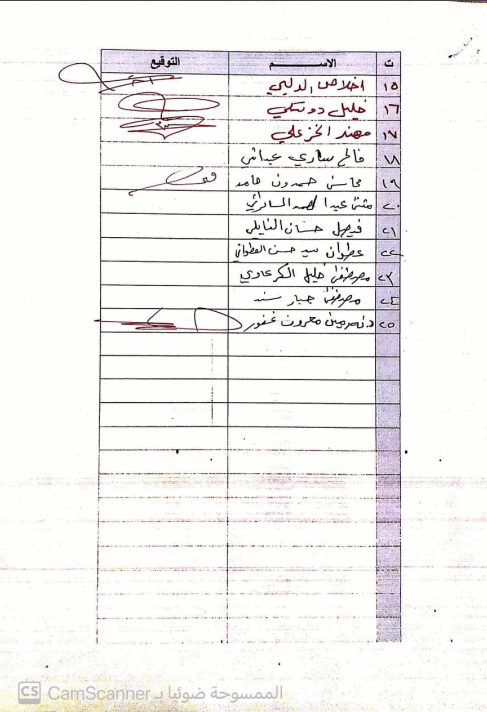 ت الاســـــم التوقيع
١٥ اخلاص الدليمي
١٦ خليل دوسكي
١٧ مهند الخزعلي
١٨ فالح ساري عبداشي
١٩ محاسن حمدون حامد
٢٠ مثنى عبدالصمد السامرائي
٢١ فيصل حسان النايلي
٢٢ عطوان سيد حسن العطواني
٢٣ مصطفى خليل الكرعاوي
٢٤ مصطفى جبار سند
٢٥ معروف غفور
CS CamScanner الممسوحة ضوئيا بـ